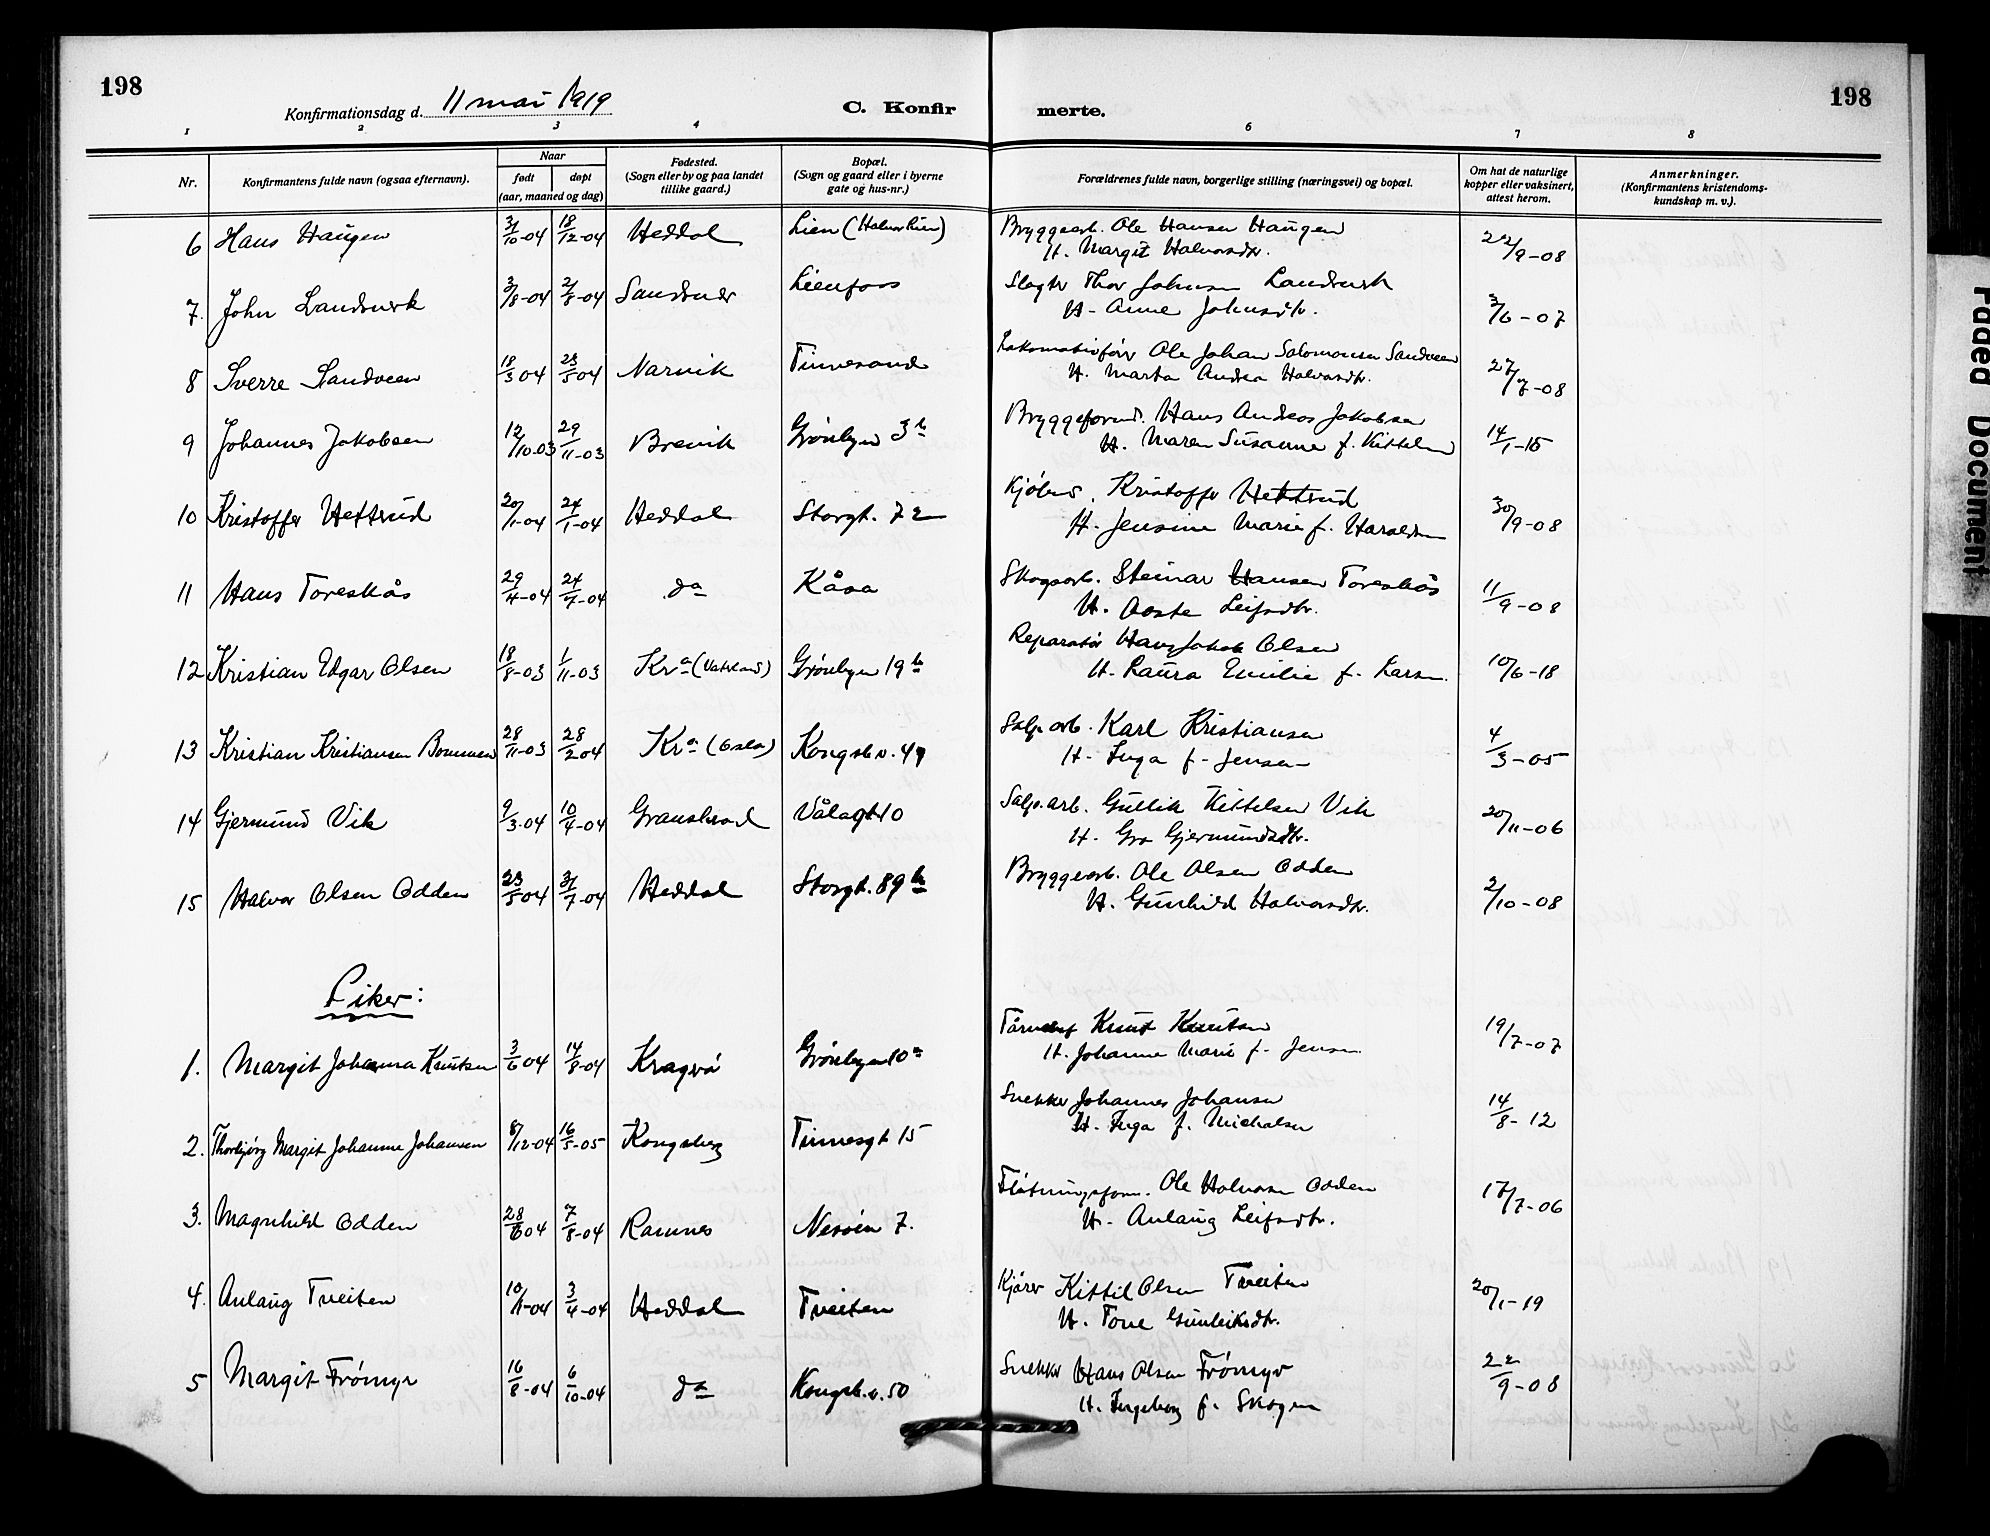 198
Konfirmationsdag d. 11 mai 1919
C. Konfir merte.
198
1 2 3 4 6 7 8
Nr. Konfirmantens fulde navn (ogsaa efternavn). Naar født døpt (aar, maaned og dag) Fødested. (Sogn eller by og paa landet tillike gaard.) Bopæl. (Sogn og gaard eller i byerne gate og hus-nr.) Forældrenes fulde navn, borgerlige stilling (næringsvei) og bopæl. Om hat de naturlige kopper eller vaksinert, attest herom. Anmerkninger. (Konfirmantens kristendoms-kundskap m. v.).
6 Hans Haugen 3/10-04 18/12-04 Heddal Lien (Halvor Lien) Bryggearb. Ole Hansen Haugen 22/9-08
H. Margit Halvorsdtr.
7. John Landverk 3/8-04 2/8-04 Sandsver Lienfoss Slagter Thor Johnsen Landverk 3/6-07
H. Anne Johnsdtr.
8 Sverre Sandveen 18/3 04 23/5 04 Narvik Tinnesand Lokomotivfører Ole Johan Salomonsen Sandveen 27/7-08
H. Marta Andrea Halvorsdtr.
9 Johannes Jakobsen 12/10-03 29/11-03 Brevik Grønbyen 3 b Bryggeformd. Hans Andreas Jakobsen 14/1-15
H. Maren Susanne f. Kittelsen
10 Kristoffer Hettrud 20/1-04 24/1-04 Heddal Storgt. 72 Kristoffer Hettrud 30/9-08
H. Jensine Marie f. Haraldsen
11 Hans Toreskås 29/4-04 24/7-04 do Kåsa Skogsarb. Steinar Hansen Toreskås 11/9-08
H. Aaste Leifsdtr.
12 Kristian Edgar Olsen 18/8-03 1/11-03 Kra (Vaterland) Grønbyen 19 b Reparatør Hans Jakob Olsen 10/6-18
H. Laura Emilie f. Larsen
13 Kristian Kristiansen Bommen 28/11-03 28/2 04 Kra (Oslo) Kongsb.v. 49 Salp.arb. Karl Kristiansen 4/3-05
H. Inga f. Jensen
14 Gjermund Vik 9/3-04 10/4-04 Gransherad Vålagt 10 Salp.arb. Gullik Kittelsen Vik 20/11-06
H. Gro Gjermundsdtr.
15 Halvor Olsen Odden 23/5 04 31/7-04 Heddal Storgt. 89 b Bryggearb. Ole Olsen Odden 2/10-08
H. Gunhild Halvorsdtr.
Piker:
1. Margit Johanna Knutsen 3/6 04 14/8-04 Kragerø Grønbyen 10 a Knut Knutsen 19/7-07
H. Johanne Marie f. Jensen
2. Thorbjørg Margit Johanne Johansen 8/12-04 16/5-05 Kongsberg Tinnesgt 15 Snekker Johannes Johansen 14/8-12
H. Inga f. Michalsen
3. Magnhild Odden 28/6 04 7/8-04 Ramnes Nesøen 7. Fløtningsform. Ole Halvorsen Odden 17/7-06
H. Anlaug Leifsdtr.
4. Anlaug Tveiten 10/1-04 3/4-04 Heddal Tveiten Kjører Kittil Olsen Tveiten 20/1-19
H. Tone Gunleiksdtr.
5 Margit Frømyr 16/8-04 6/10-04 do Kongsb.v. 50 Snekker Hans Olsen Frømyr 22/9-08
H. Ingeborg f. Skogen
Faded Document